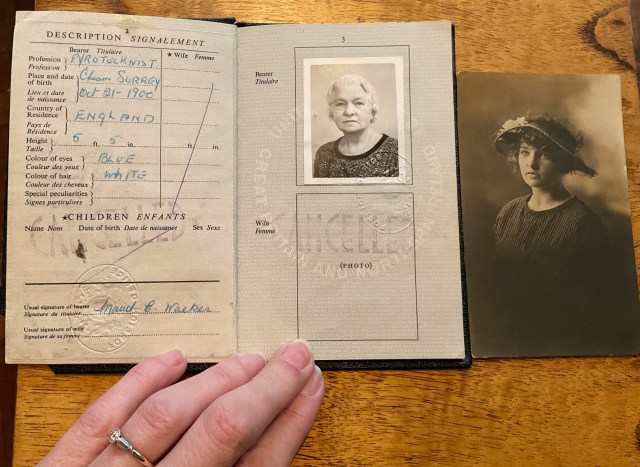 2
DESCRIPTION SIGNALEMENT
Bearer Titulaire
★ Wife Femme
Profession
Profession
PYROTECKNIST
Place and date
of birth
Lieu et date
de naissance
Cheam SURREY
Oct 21 - 1900
Country of
Residence
Pays de
Résidence
ENGLAND
Height
Taille
5 ft. 5 in.
ft. in.
Colour of eyes
Couleur des yeux
BLUE
Colour of hair
Couleur des cheveux
WHITE
Special peculiarities
Signes particuliers
CANCELLED
★CHILDREN ENFANTS
Name Nom Date of birth Date de naissance Sex Sexe
Usual signature of bearer
Signature du titulaire
Maud E. Warren
Usual signature of wife
Signature de sa femme
3
Bearer
Titulaire
Wife
Femme
CANCELLED
(PHOTO)
UNITED KINGDOM OF
GREAT BRITAIN AND NORTHERN IRELAND